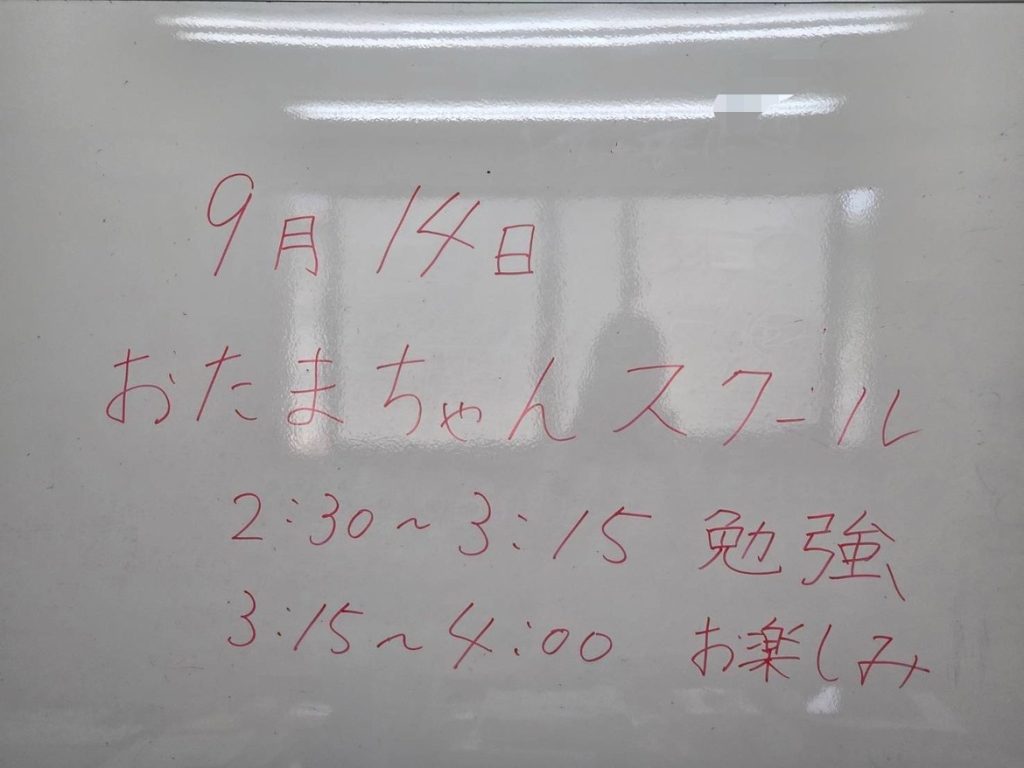 9月14日
おたまちゃんスクール
2:30～3:15 勉強
3:15～4:00 お楽しみ